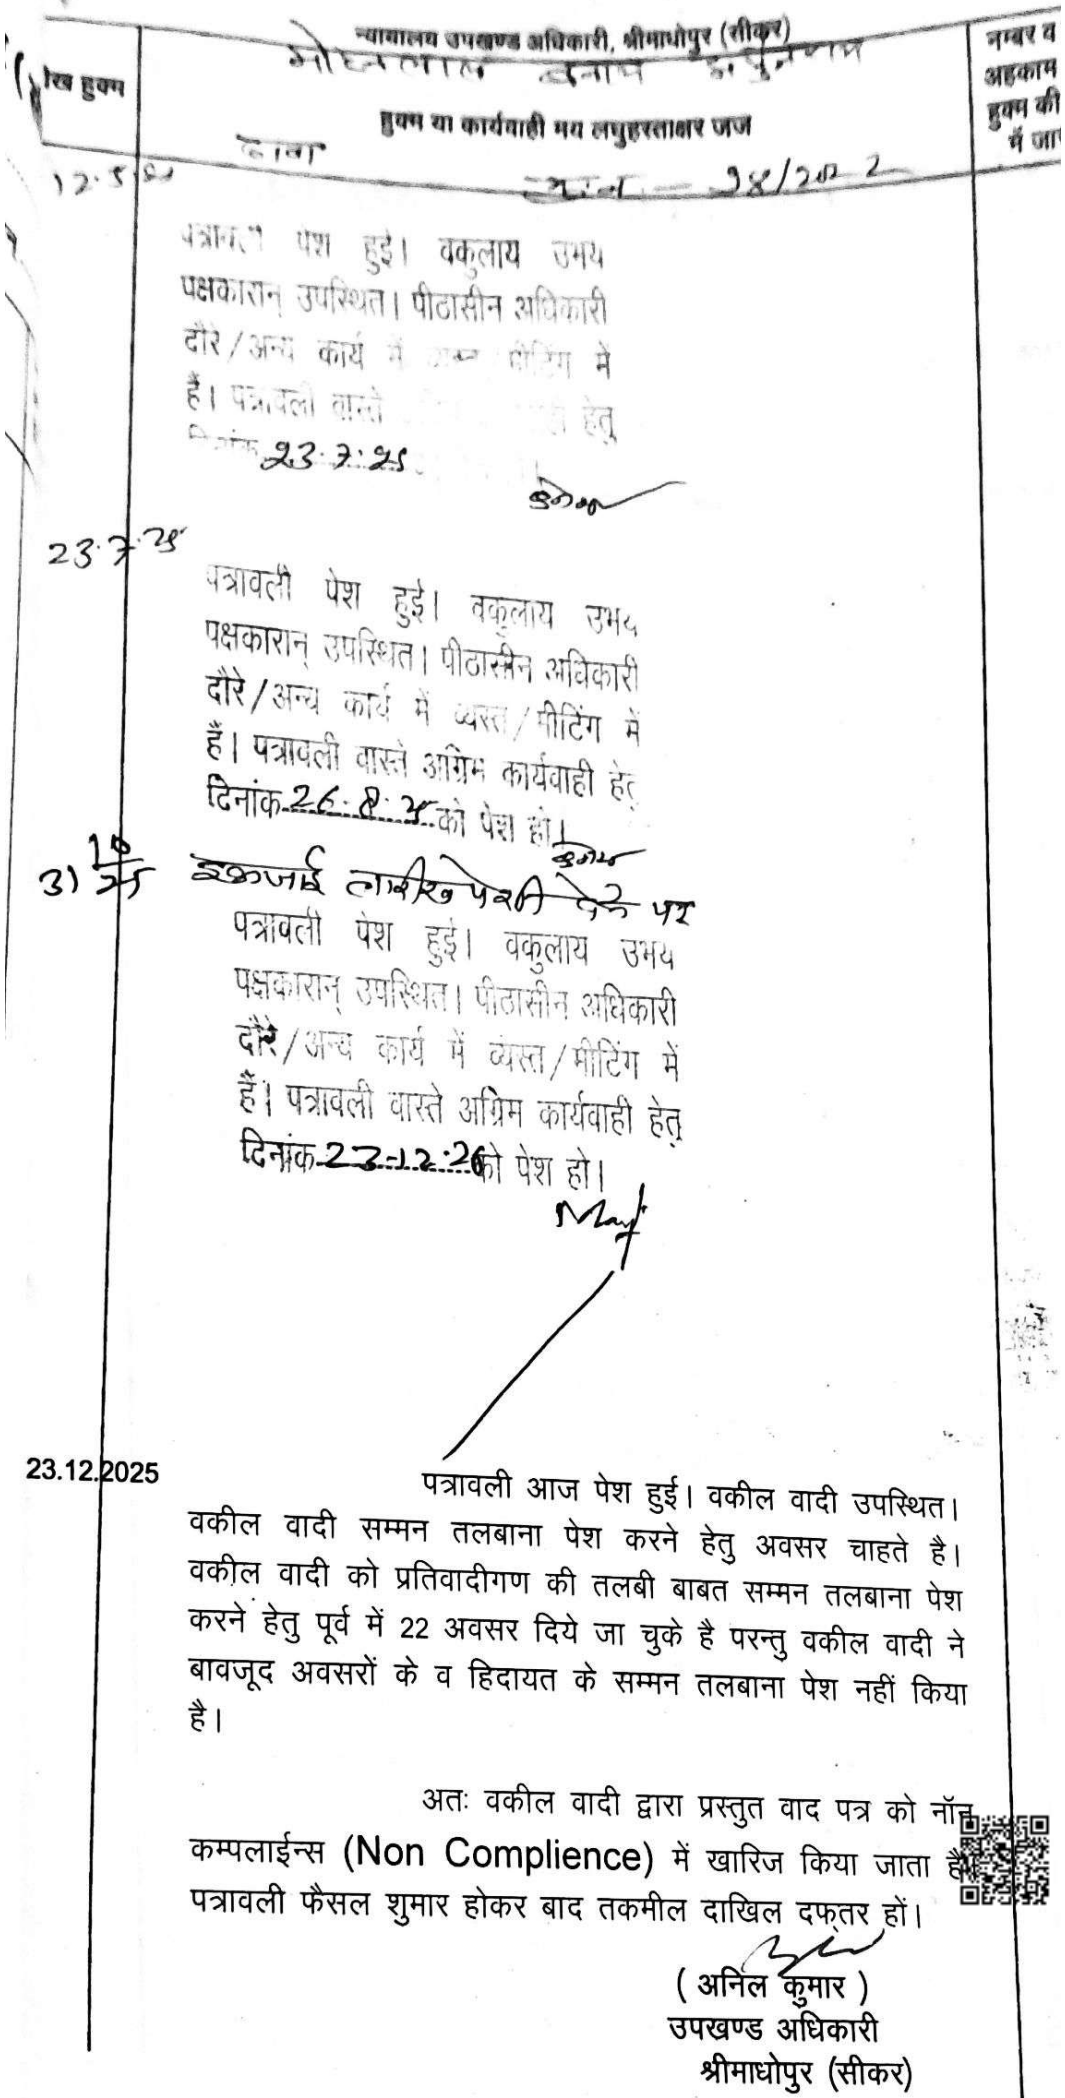 न्यायालय उपखण्ड अधिकारी, श्रीमाधोपुर (सीकर)
मोहनलाल बनाम
नम्बर व
अहकाम
हुक्म की
में जा
हुक्म
हुक्म या कार्यवाही मय लघुहस्ताक्षर जज
दावा
12.5.25
98/2022
पत्रावली पेश हुई। वकुलाय उभय
पक्षकारान् उपस्थित। पीठासीन अधिकारी
दौरे/अन्य कार्य में मीटिंग में
हैं। पत्रावली वास्ते हेतु
दिनांक 23.7.25
23.7.25
पत्रावली पेश हुई। वकुलाय उभय
पक्षकारान् उपस्थित। पीठासीन अधिकारी
दौरे/अन्य कार्य में व्यस्त/मीटिंग में
हैं। पत्रावली वास्ते अग्रिम कार्यवाही हेतु
दिनांक 26.8.25 को पेश हो।
31 10/25 इकजाई तारीख पेशी देने पर
पत्रावली पेश हुई। वकुलाय उभय
पक्षकारान् उपस्थित। पीठासीन अधिकारी
दौरे/अन्य कार्य में व्यस्त/मीटिंग में
हैं। पत्रावली वास्ते अग्रिम कार्यवाही हेतु
दिनांक 23-12.26 को पेश हो।
23.12.2025
पत्रावली आज पेश हुई। वकील वादी उपस्थित।
वकील वादी सम्मन तलबाना पेश करने हेतु अवसर चाहते है।
वकील वादी को प्रतिवादीगण की तलबी बाबत सम्मन तलबाना पेश
करने हेतु पूर्व में 22 अवसर दिये जा चुके है परन्तु वकील वादी ने
बावजूद अवसरों के व हिदायत के सम्मन तलबाना पेश नहीं किया
है।
अतः वकील वादी द्वारा प्रस्तुत वाद पत्र को नॉन
कम्पलाईन्स (Non Complience) में खारिज किया जाता है।
पत्रावली फैसल शुमार होकर बाद तकमील दाखिल दफ्तर हों।
( अनिल कुमार )
उपखण्ड अधिकारी
श्रीमाधोपुर (सीकर)